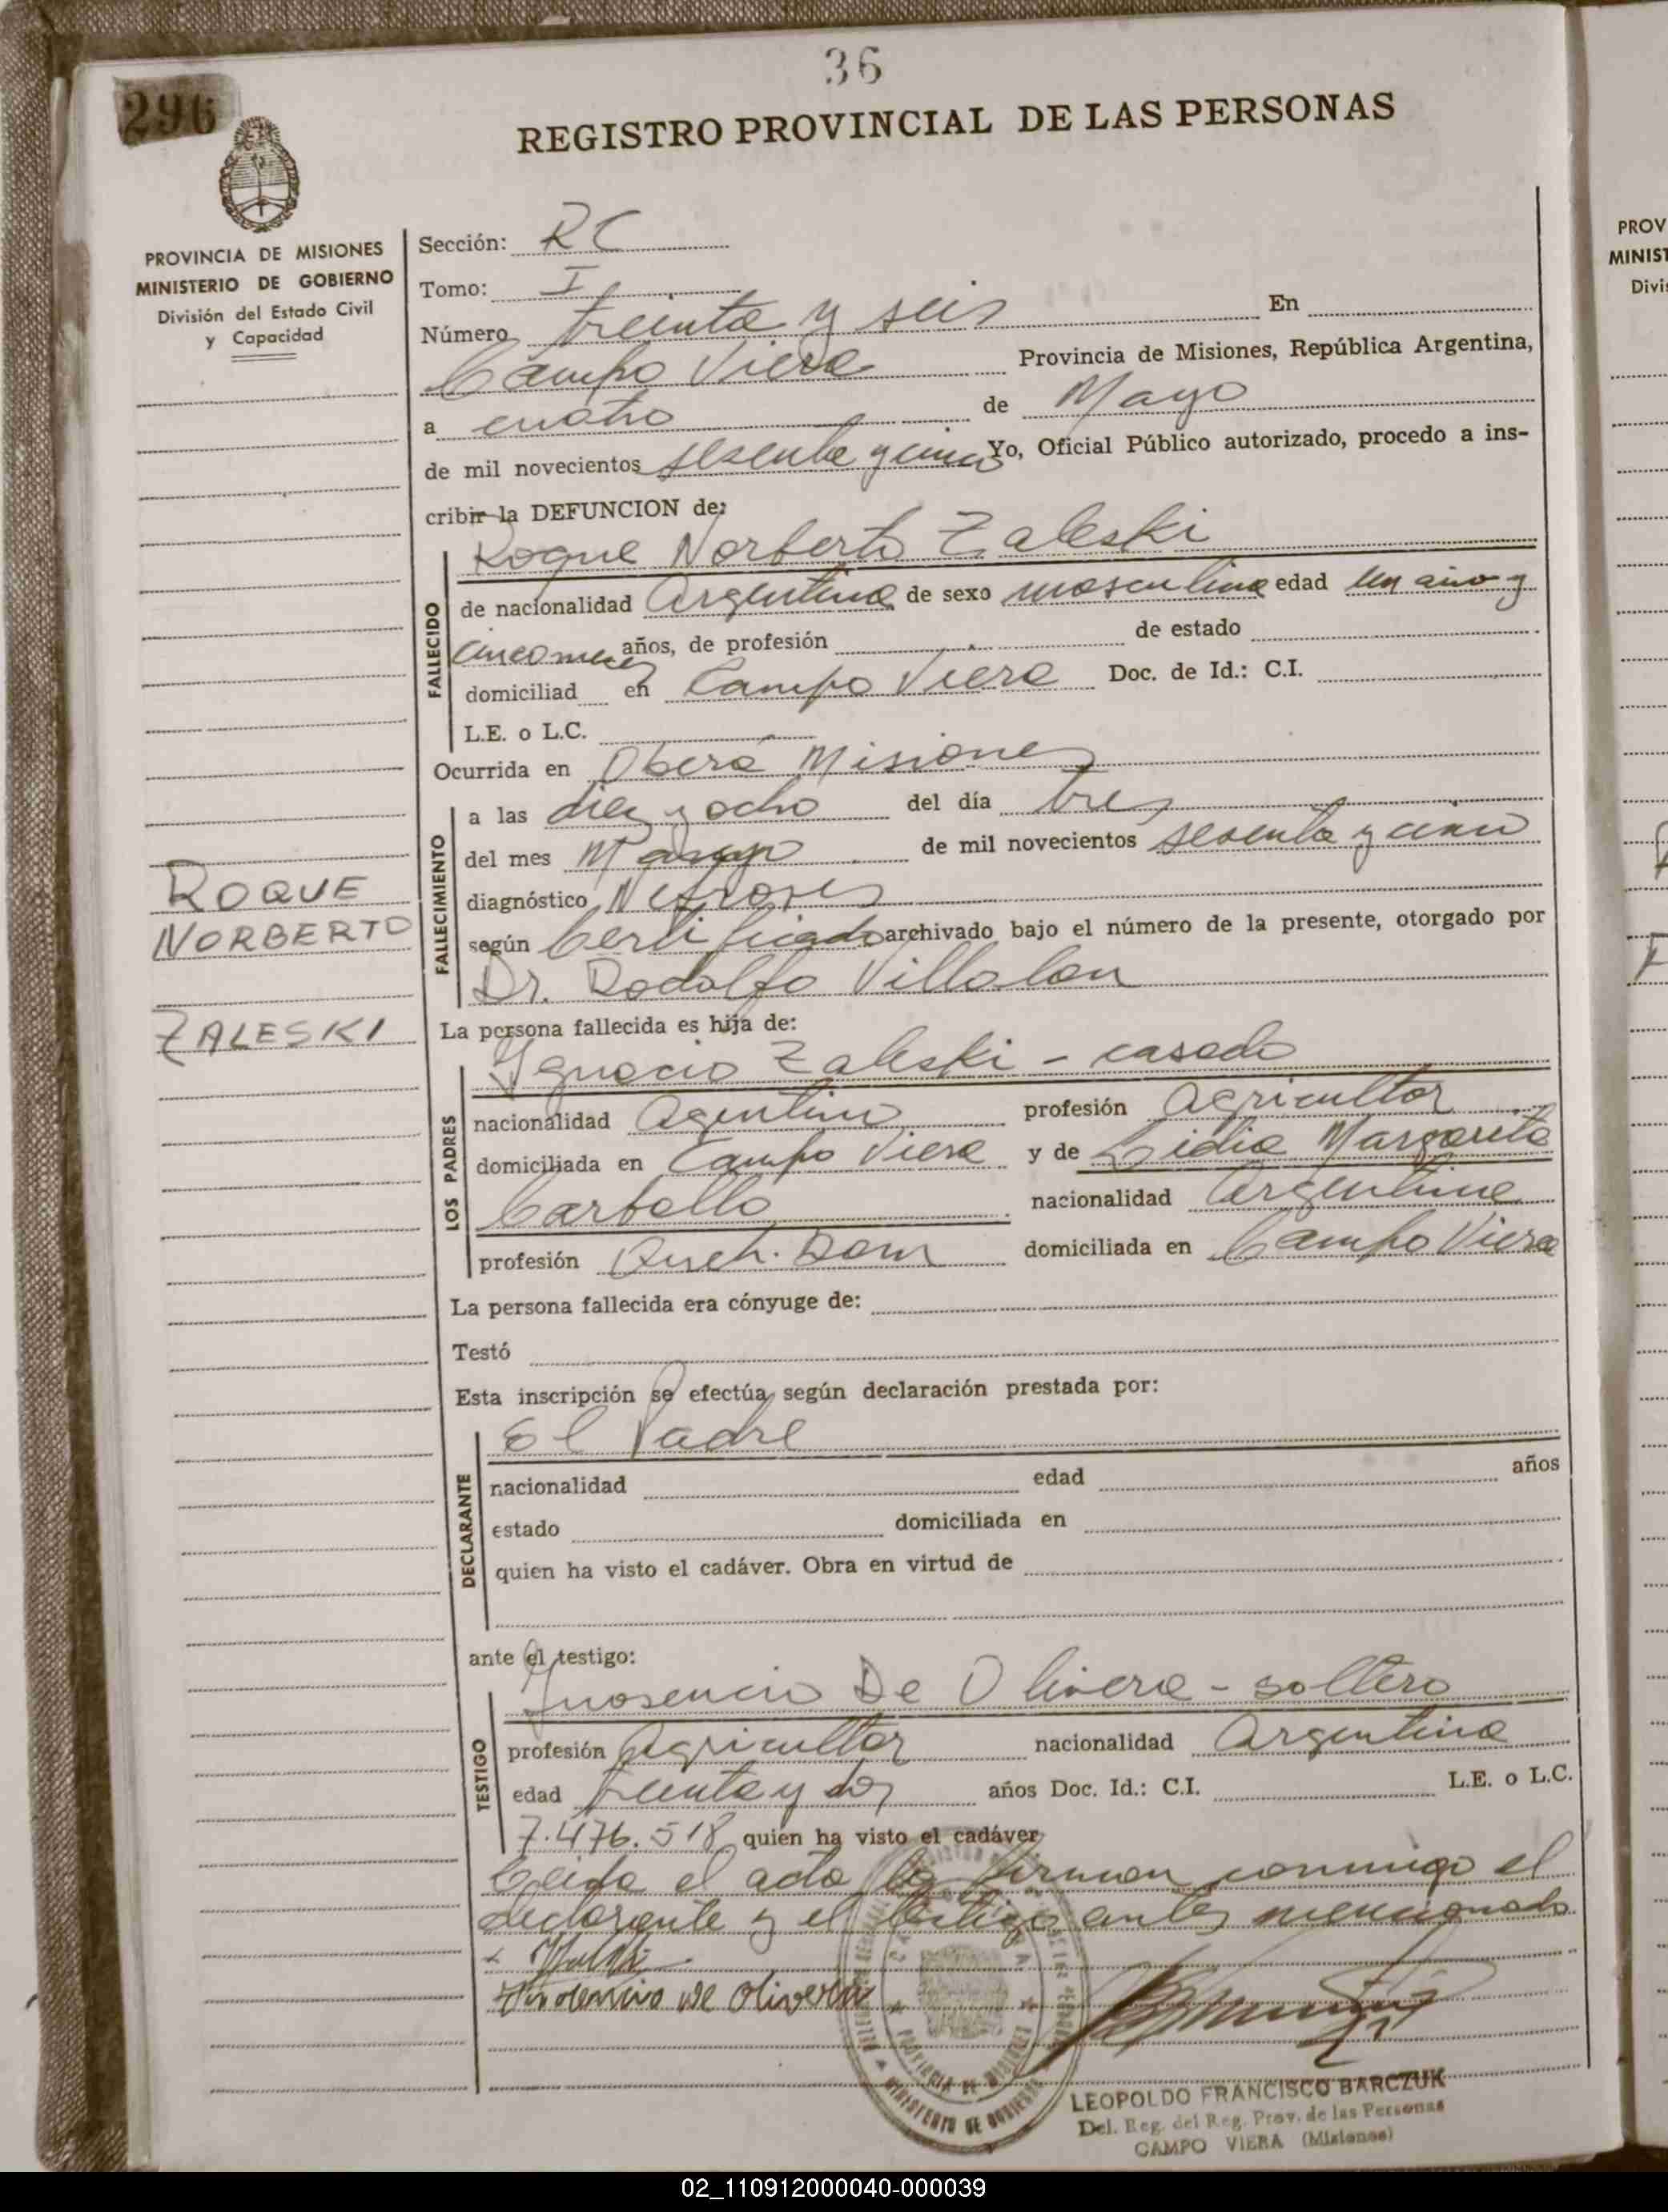 36
296
REGISTRO PROVINCIAL DE LAS PERSONAS
PROVINCIA DE MISIONES
MINISTERIO DE GOBIERNO
División del Estado Civil
y Capacidad
ROQUE
NORBERTO
ZALESKI
Sección: RC
Tomo: I
Número treinta y seis En
Campo Viera Provincia de Misiones, República Argentina,
a cuatro de Mayo
de mil novecientos sesenta y cinco Yo, Oficial Público autorizado, procedo a ins-
cribir la DEFUNCION de:
FALLECIDO
Roque Norberto Zaleski
de nacionalidad Argentina de sexo masculino edad un año y
cinco meses años, de profesión de estado
domiciliad en Campo Viera Doc. de Id.: C.I.
L.E. o L.C.
Ocurrida en Oberá Misiones
FALLECIMIENTO
a las diez y ocho del día tres
del mes Mayo de mil novecientos sesenta y cinco
diagnóstico Nefrosis
según Certificado archivado bajo el número de la presente, otorgado por
Dr. Rodolfo Villalon
La persona fallecida es hija de:
LOS PADRES
Ygnacio Zaleski - casado
nacionalidad Agentino profesión Agricultor
domiciliada en Campo Viera y de Lidia Margarita
Carballo nacionalidad Argentina
profesión Domiciliada en Campo Viera
La persona fallecida era cónyuge de:
Testó
Esta inscripción se efectúa según declaración prestada por:
DECLARANTE
El Padre
nacionalidad edad años
estado domiciliada en
quien ha visto el cadáver. Obra en virtud de
ante el testigo:
TESTIGO
Ynosencio De Olivera - soltero
profesión Agricultor nacionalidad Argentina
edad treinta y dos años Doc. Id.: C.I. L.E. o L.C.
7.476.518 quien ha visto el cadáver
Leida el acta la firman conmigo el
declarante y el testigo antes mencionado
de Olivera
PROVINCIA DE MISIONES
MINISTERIO DE GOBIERNO
LEOPOLDO FRANCISCO BARCZUK
Del. Reg. del Reg. Prov. de las Personas
CAMPO VIERA (Misiones)
PROV
MINIST
Divi
02_110912000040-000039